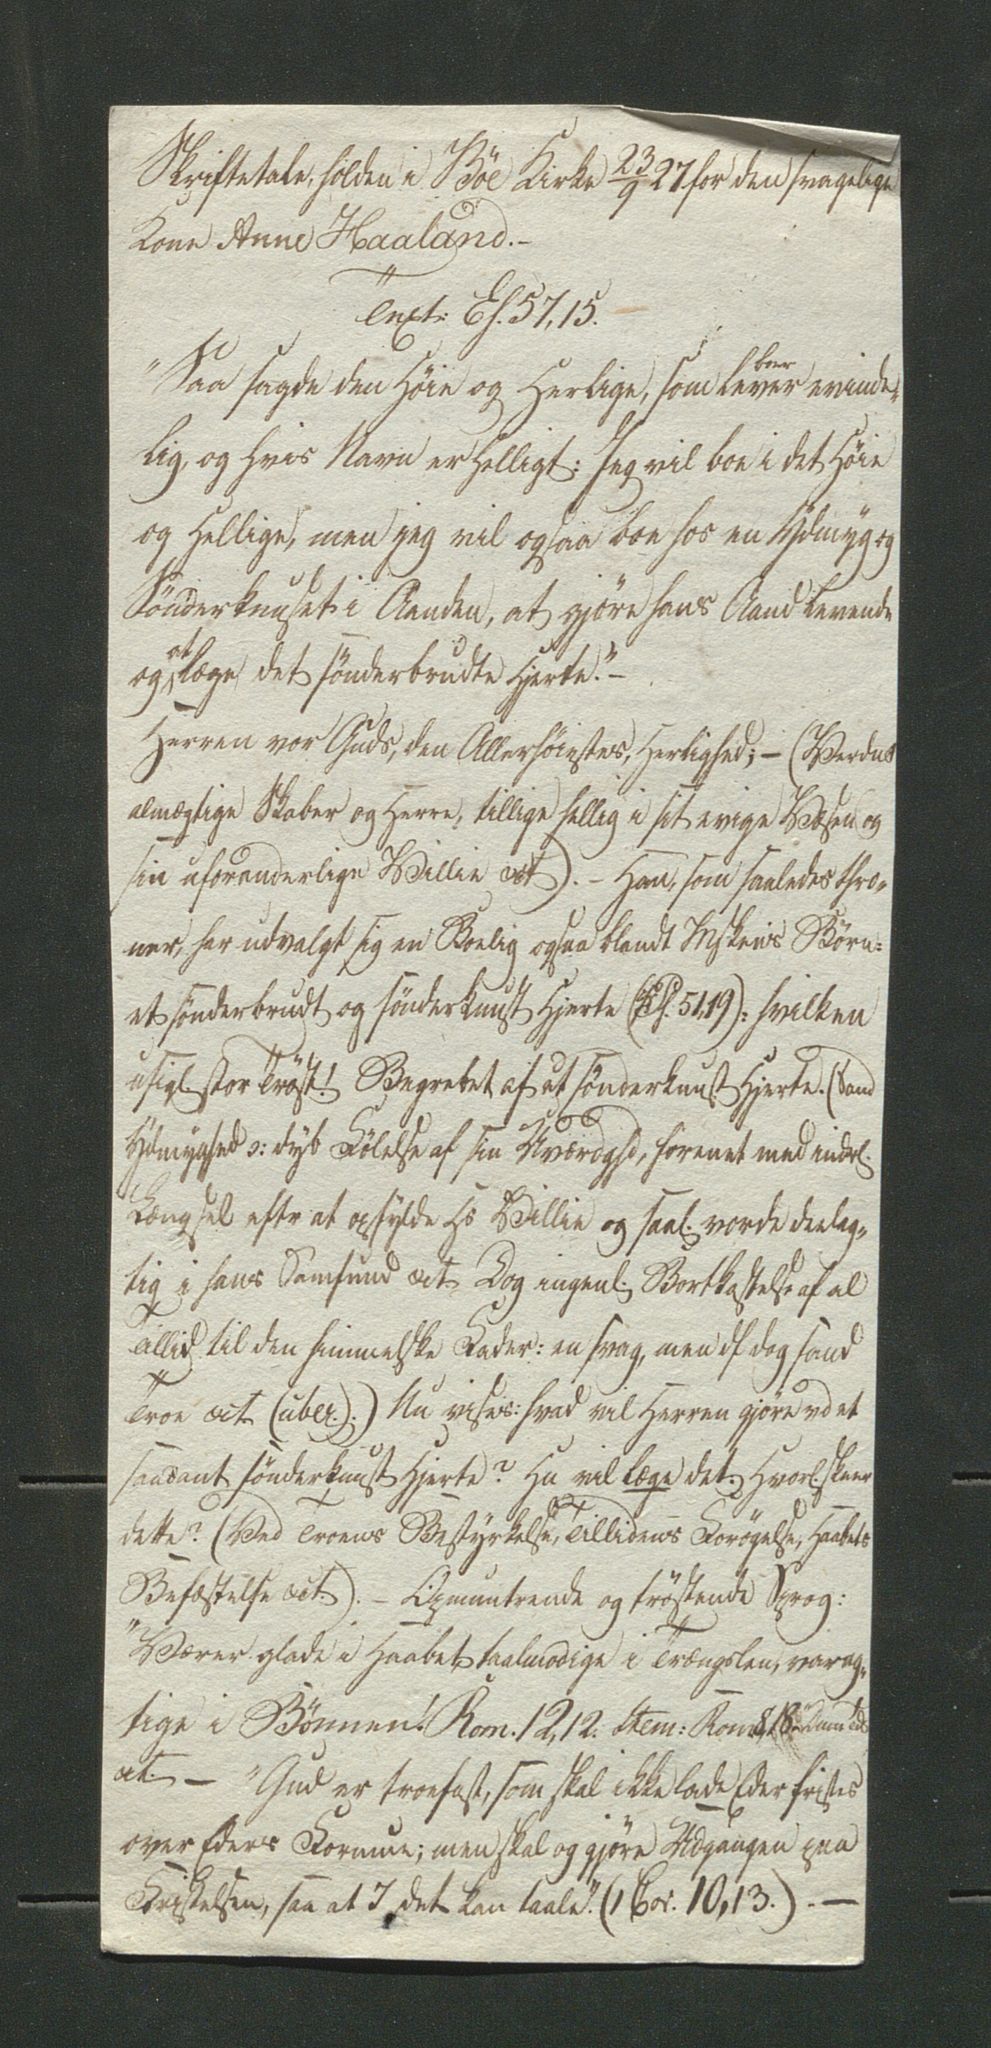 Skriftetale, holden i Böe Kirke 23/9 27 for den svagelige
Kone Anne Haaland.-
Text: Es. 57,15.
"Saa sagde den Høie og Herlige, som lever boer evinde-
lig, og hvis Navn er Helligt: Jeg vil boe i det Høie
og Hellige, men jeg vil ogsaa boe hos en Ydmyg og
Sönderknuset i Aanden, at gjöre hans Aand levende
og at læge det sönderbrudte Hjerte."-
Herren vor Guds, den Allerhöiestes, Herlighed; - (Verdns
almægtige Skaber og Herre, tillige hellig i sit evige Væsen og
sin uforanderlige Villie oct). - Han, som saaledes thro-
ner, har udvalgt sig en Boelig ogsaa blandt Mskens Börn:
et sönderbrudt og sönderknust Hjerte (Ps. 51,19): hvilken
usigl. stor Tröst! Begrebet af et sönderknust Hjerte. (Sand
Ydmyghed ɔ: dyb Fölelse af sin Uværdighd, forenet med inderl.
Længsel eftr at opfylde Hs Villie og saal. vorde deelag-
tig i hans Samfund oct. Dog ingenl. Bortkastelse af al
Tillid til den himmelske Fader: en svag, men df dog sand
Troe oct. (uber.).) Nu vises: hvad vil Herren gjöre vd et
saadant sönderknust Hjerte? Hn vil læge det. Hvorl. skeer
dette? (Ved Troens Bestyrkelse, Tillidens Forögelse, Haabets
Befæstelse oct.). - Opmuntrende og tröstende Sprog:
"Værer glade i Haabet, taalmodige i Trængslen, varag-
tige i Bönnen! Rom. 12,12. Item: Rom. 8,18
oct. - "Gud er trofast, som skal ikke lade Eder fristes
over Eders Formue; men skal og gjöre Udgangen paa
Fristelsen, saa at I det kan taale". (1 Cor. 10,13.) . -